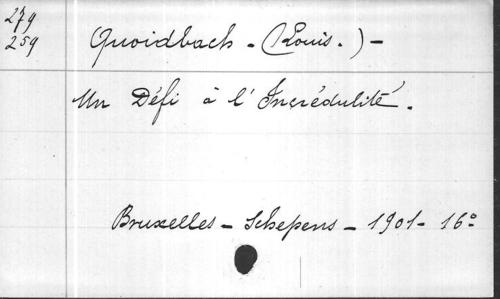 279
259
Quoidbach - (Louis.) -
Un Défi à l'Incrédulité.
Bruxelles - Schepens - 1901 - 16°